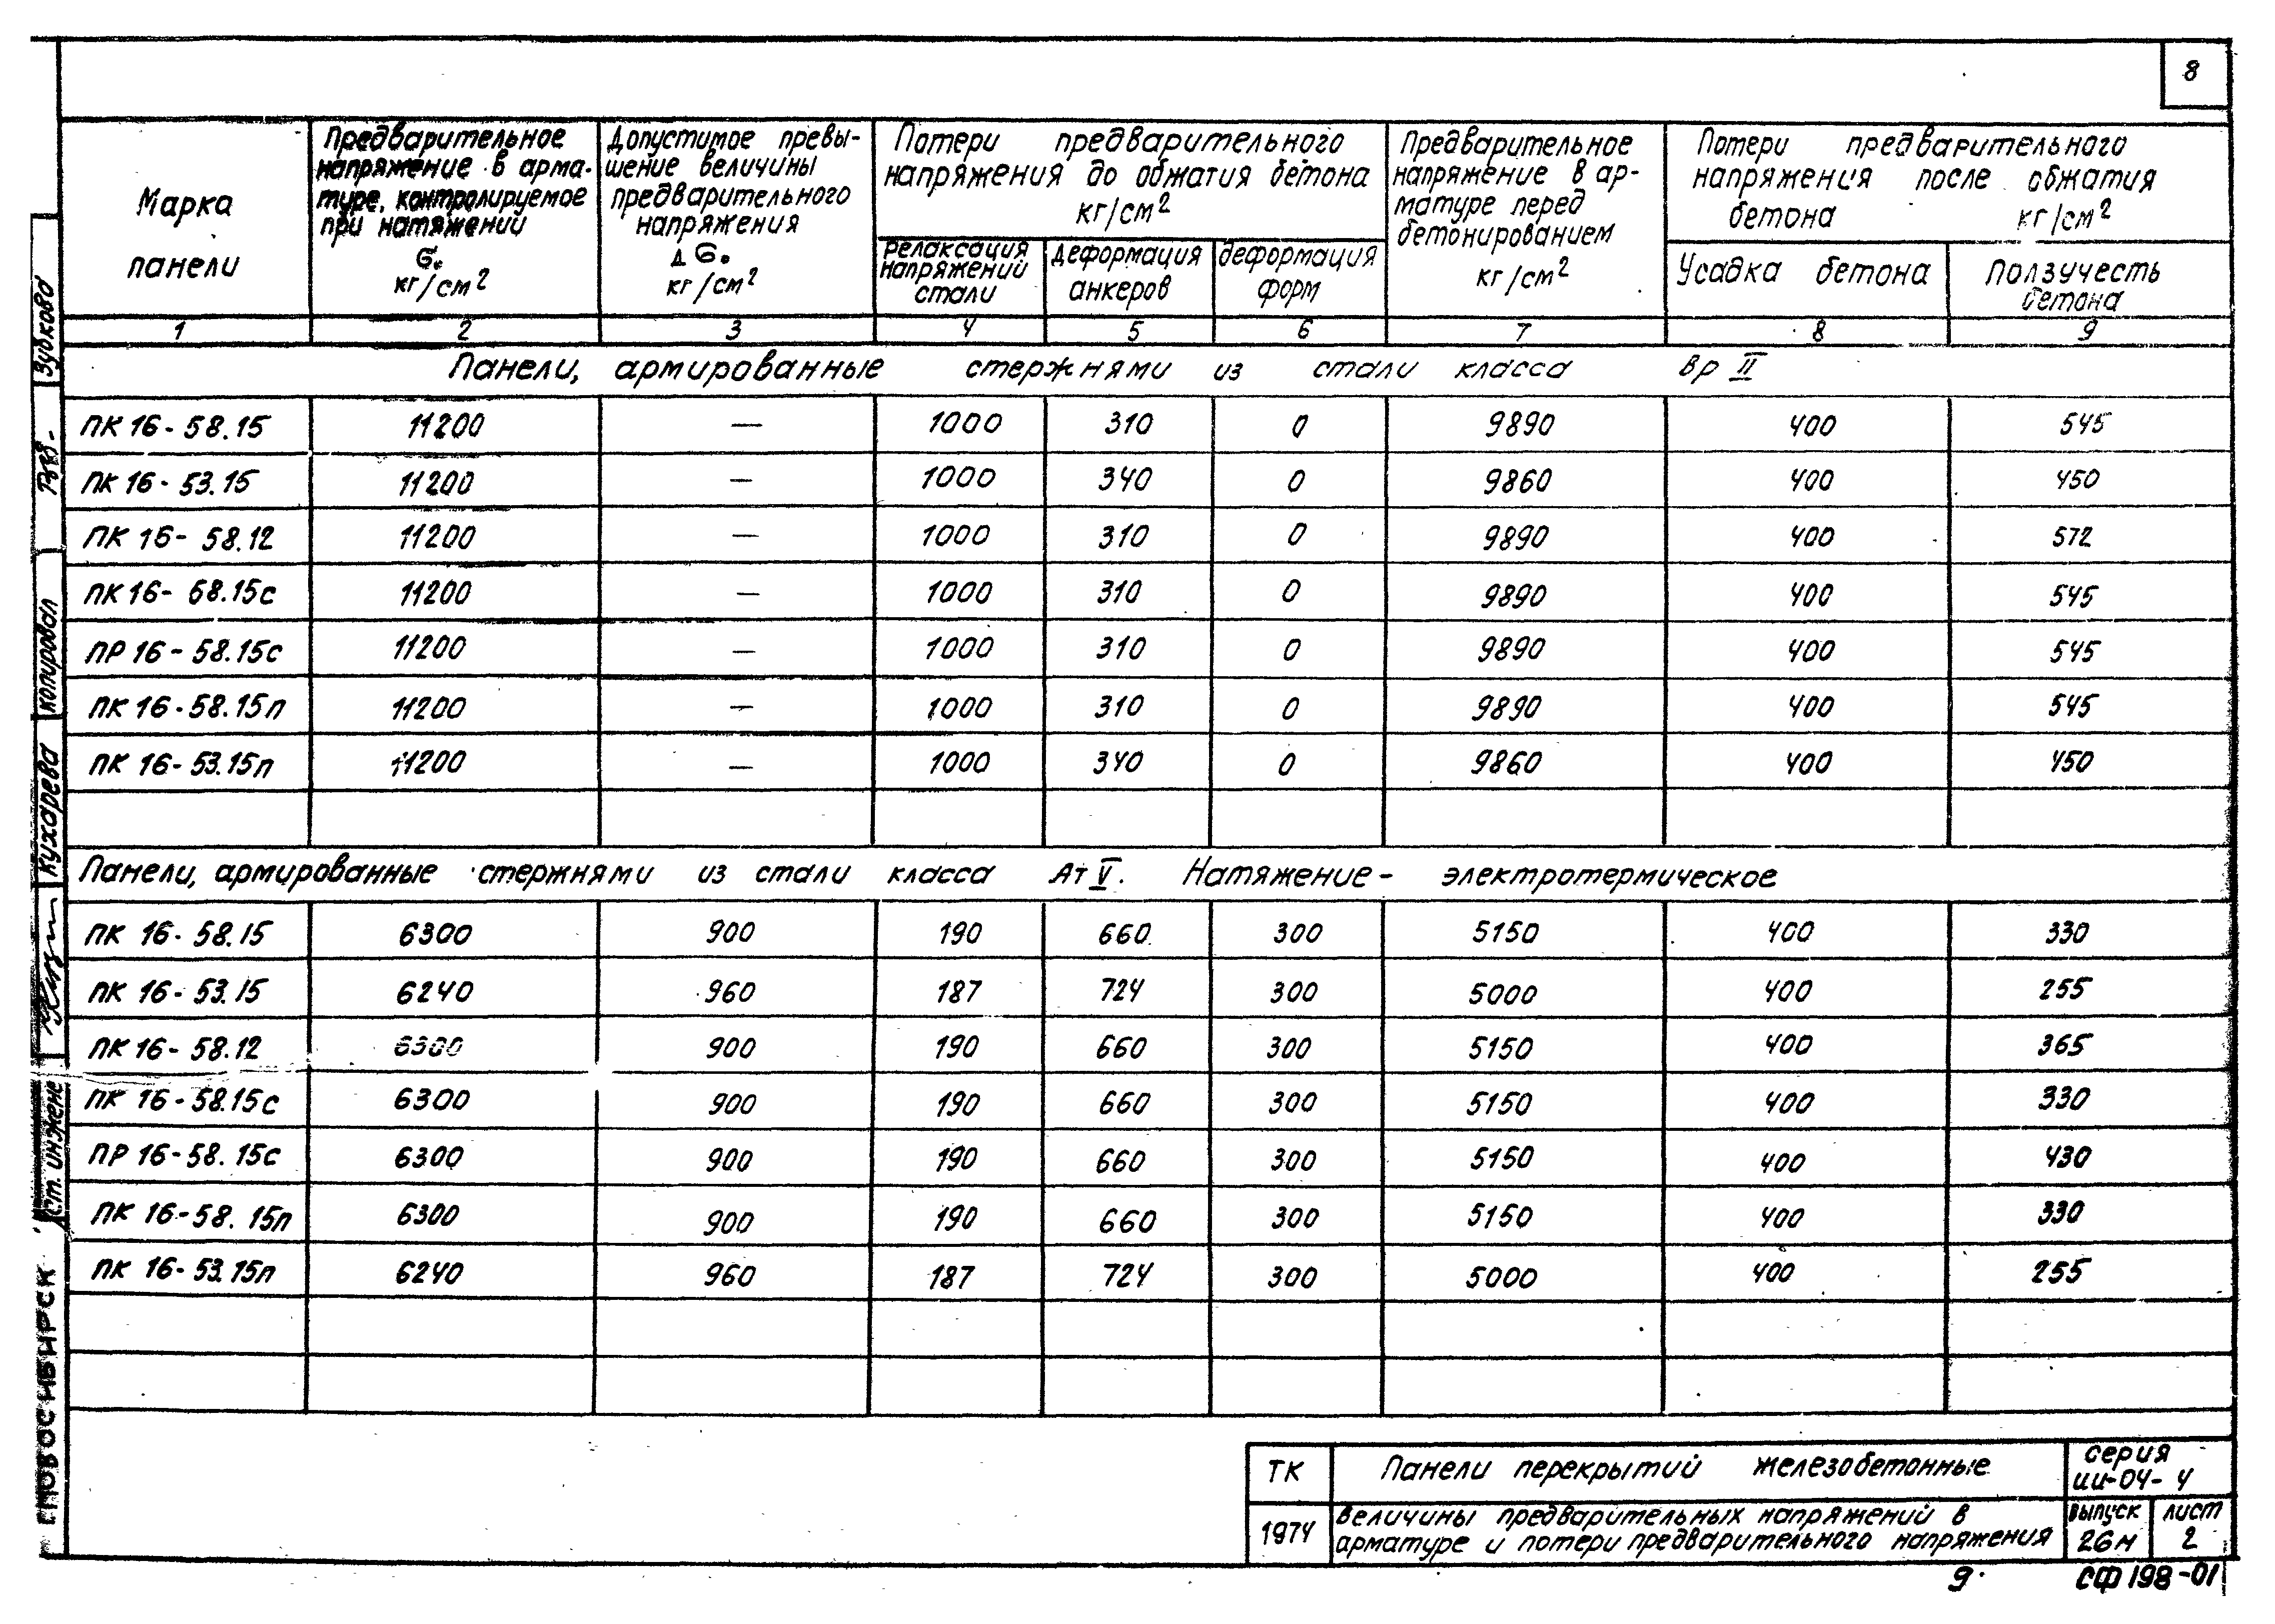 8
Марка панели
Предварительное напряжение в арматуре, контролируемое при натяжении σ₀ кг/см²
Допустимое превышение величины предварительного напряжения Δσ₀ кг/см²
Потери предварительного напряжения до обжатия бетона кг/см²
релаксация напряжений стали
деформация анкеров
деформация форм
Предварительное напряжение в арматуре перед бетонированием кг/см²
Потери предварительного напряжения после обжатия бетона кг/см²
Усадка бетона
Ползучесть бетона
1 2 3 4 5 6 7 8 9
Панели, армированные стержнями из стали класса Вр II
ПК 16-58.15 11200 — 1000 310 0 9890 400 545
ПК 16-53.15 11200 — 1000 340 0 9860 400 450
ПК 16-58.12 11200 — 1000 310 0 9890 400 572
ПК 16-68.15с 11200 — 1000 310 0 9890 400 545
ПР 16-58.15с 11200 — 1000 310 0 9890 400 545
ПК 16-58.15п 11200 — 1000 310 0 9890 400 545
ПК 16-53.15п 11200 — 1000 340 0 9860 400 450
Панели, армированные стержнями из стали класса Ат V. Натяжение - электротермическое
ПК 16-58.15 6300 900 190 660 300 5150 400 330
ПК 16-53.15 6240 960 187 724 300 5000 400 255
ПК 16-58.12 6300 900 190 660 300 5150 400 365
ПК 16-58.15с 6300 900 190 660 300 5150 400 330
ПР 16-58.15с 6300 900 190 660 300 5150 400 430
ПК 16-58.15п 6300 900 190 660 300 5150 400 330
ПК 16-53.15п 6240 960 187 724 300 5000 400 255
ТК
Панели перекрытий железобетонные
серия ии-04-4
1974
величины предварительных напряжений в
арматуре и потери предварительного напряжения
выпуск 26н
лист 2
9
СФ 198-01
Зубкова
копировал
Кухарева
Ст. инжене
НОВОСИБИРСК